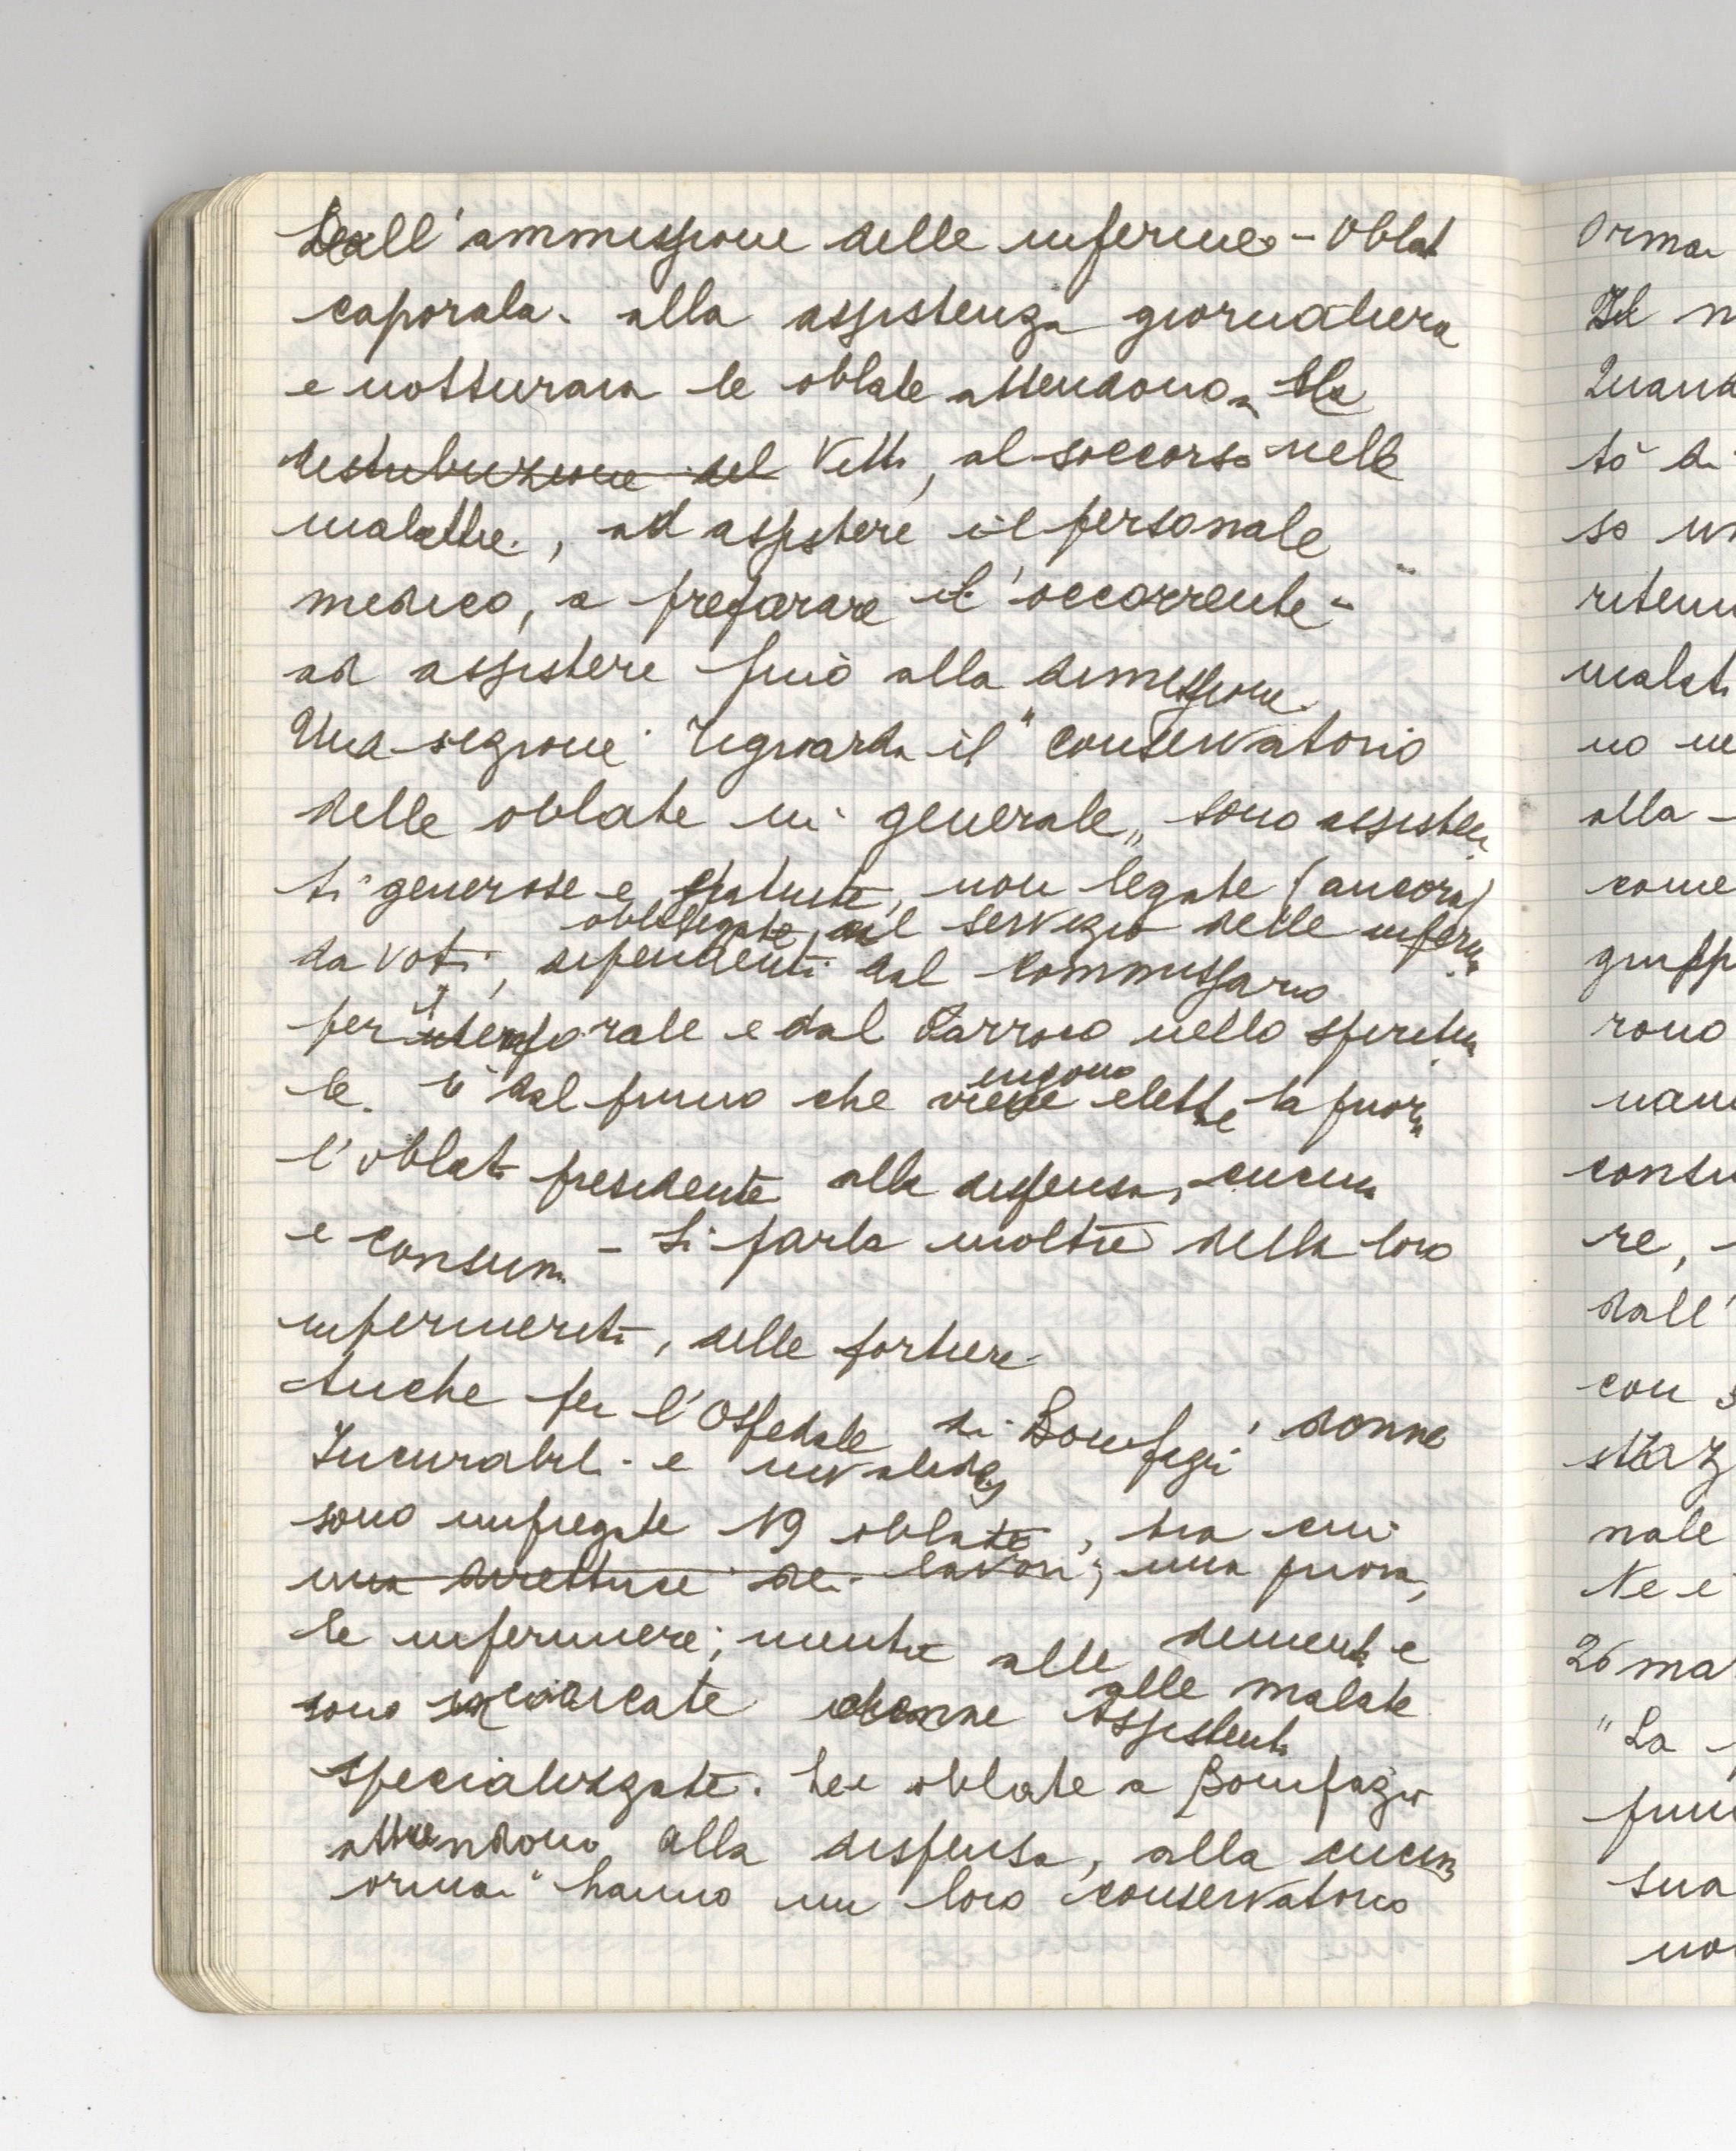 Dall'ammissione delle inferme - Oblat
caporala. alla assistenza giornaliera
e notturna le oblate attendono a lla
distribuzione del Vitti, al soccorso nelle
malattie, ad assistere il personale
medico, a preparare l'occorrente -
ad assistere finò alla dimissione.
Una sezione riguarda il "conservatorio
delle oblate in generale„ sono assisten
ti generose e gratuite, non legate (ancora)
obbligate, al servizio delle inferme
da voti, dipendenti dal Commissario
per il temporale e dal Parroco nello spiritua
le. È dal primo che vengono elette la priora
l'oblata presidente alla dispensa, cucina
e consumi - Si parla inoltre della loro
infermeria, delle portiere.
Anche per l'Ospedale di Bonifazio, donne
Incurabili e invalide,
sono impiegate 19 oblate, tra cui
una direttrice dei lavori; una priora,
le infermiere; mentre alle dementi e
alle malate
sono incaricate donne Assistenti
specializzate. Le oblate a Bonifazio
attendono alla dispensa, alla cucina
ormai hanno un loro conservatorio
Orma
Il n
Quand
tò di
so un
riten
malati
no ne
alla -
come
grupp
rono
nan
consu
re,
dall'
con s
staz
nale
Ne e'
26 ma
"La
fun
sua
no